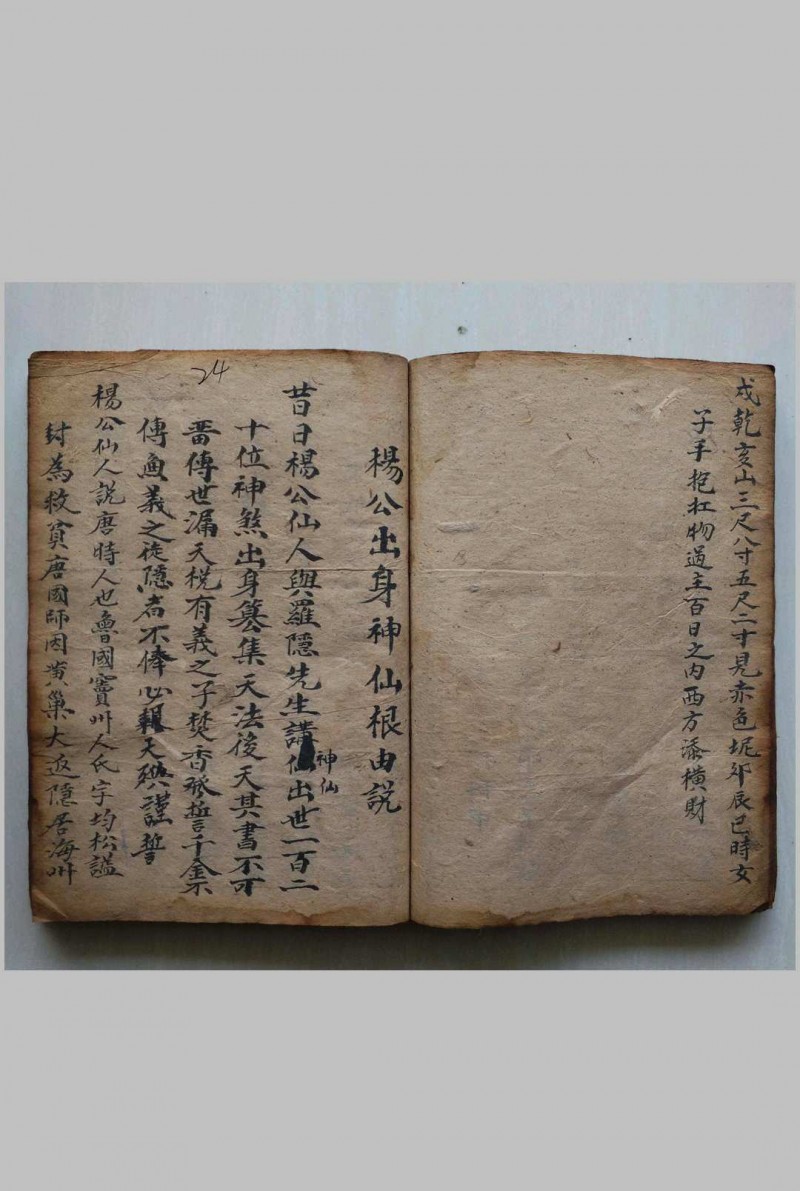 戍乾亥山三尺八寸五尺二寸見赤色坭卯辰巳時女
子手抱扛物過主百日之内西方添橫財
楊公出身神仙根由說
昔日楊公仙人與羅隱先生講仙出世一百二
神仙
十位神煞出身篡集天法後天其書不可
畨傳世漏天梲有義之子焚香發誓千金不
傳魚義之徒隱者不俸必報天殃謹誓
楊公仙人說唐時人也魯國竇州人氏字均松謚
封為救貧唐國師因黄巢大返隱居海州
24